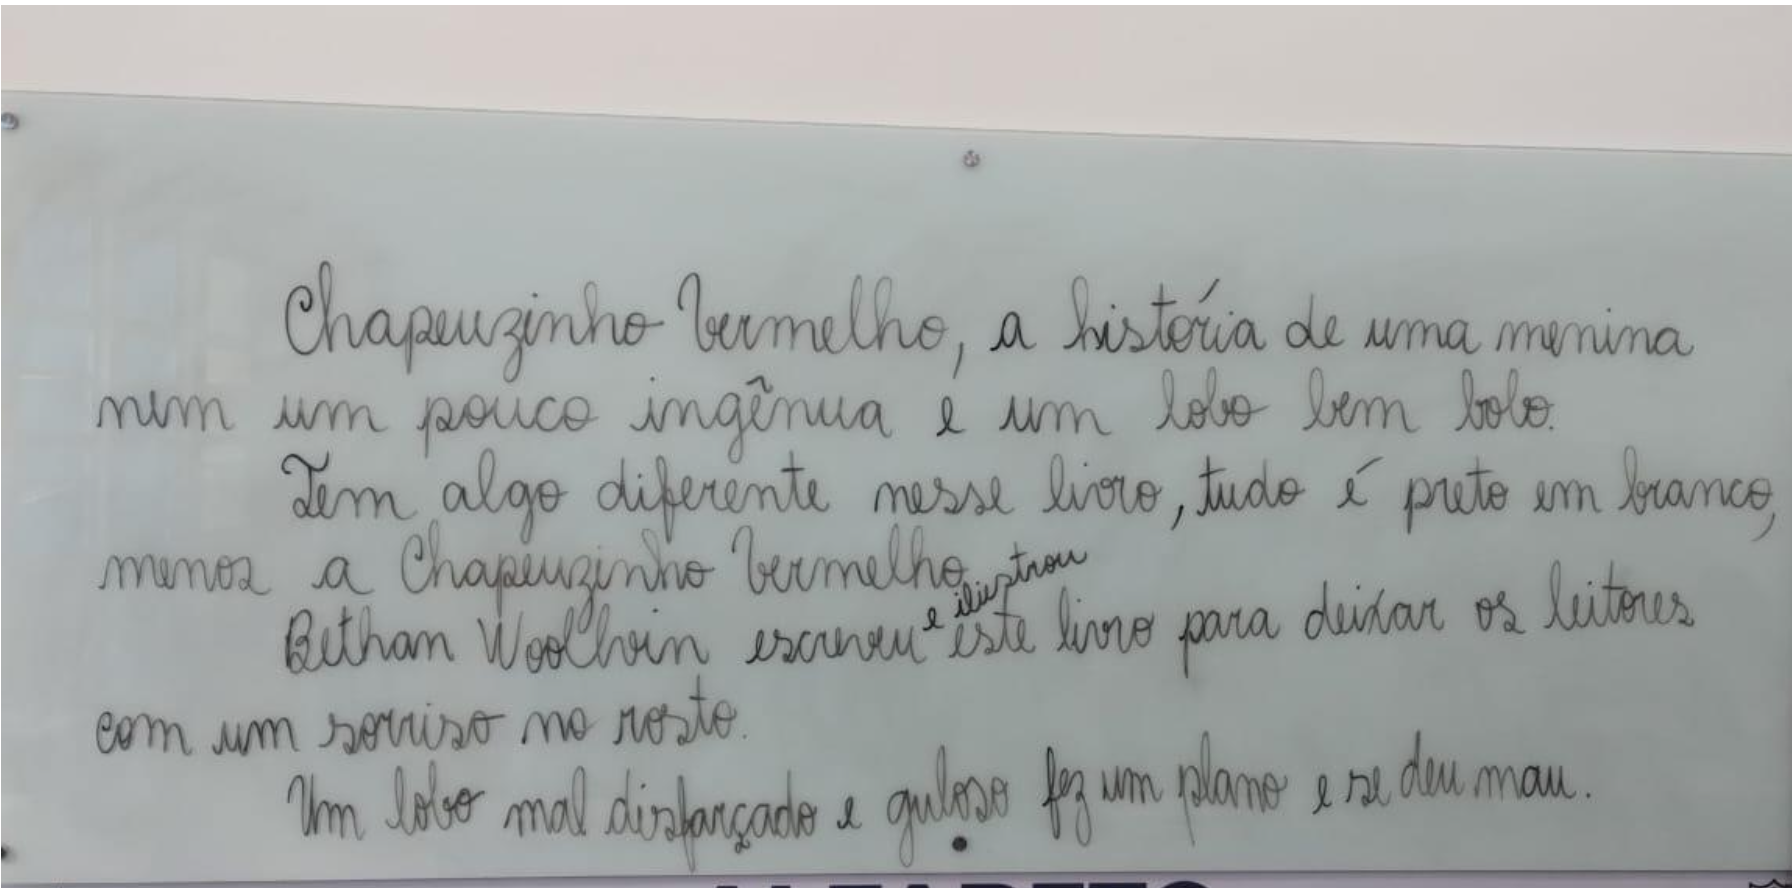 Chapeuzinho Vermelho, a história de uma menina
nem um pouco ingênua e um lobo bem bobo.
Tem algo diferente nesse livro, tudo é preto em branco,
menos a Chapeuzinho Vermelho
Bethan Woolvin escreveu e ilustrou este livro para deixar os leitores
com um sorriso no rosto.
Um lobo mal disfarçado e guloso fez um plano e se deu mau.